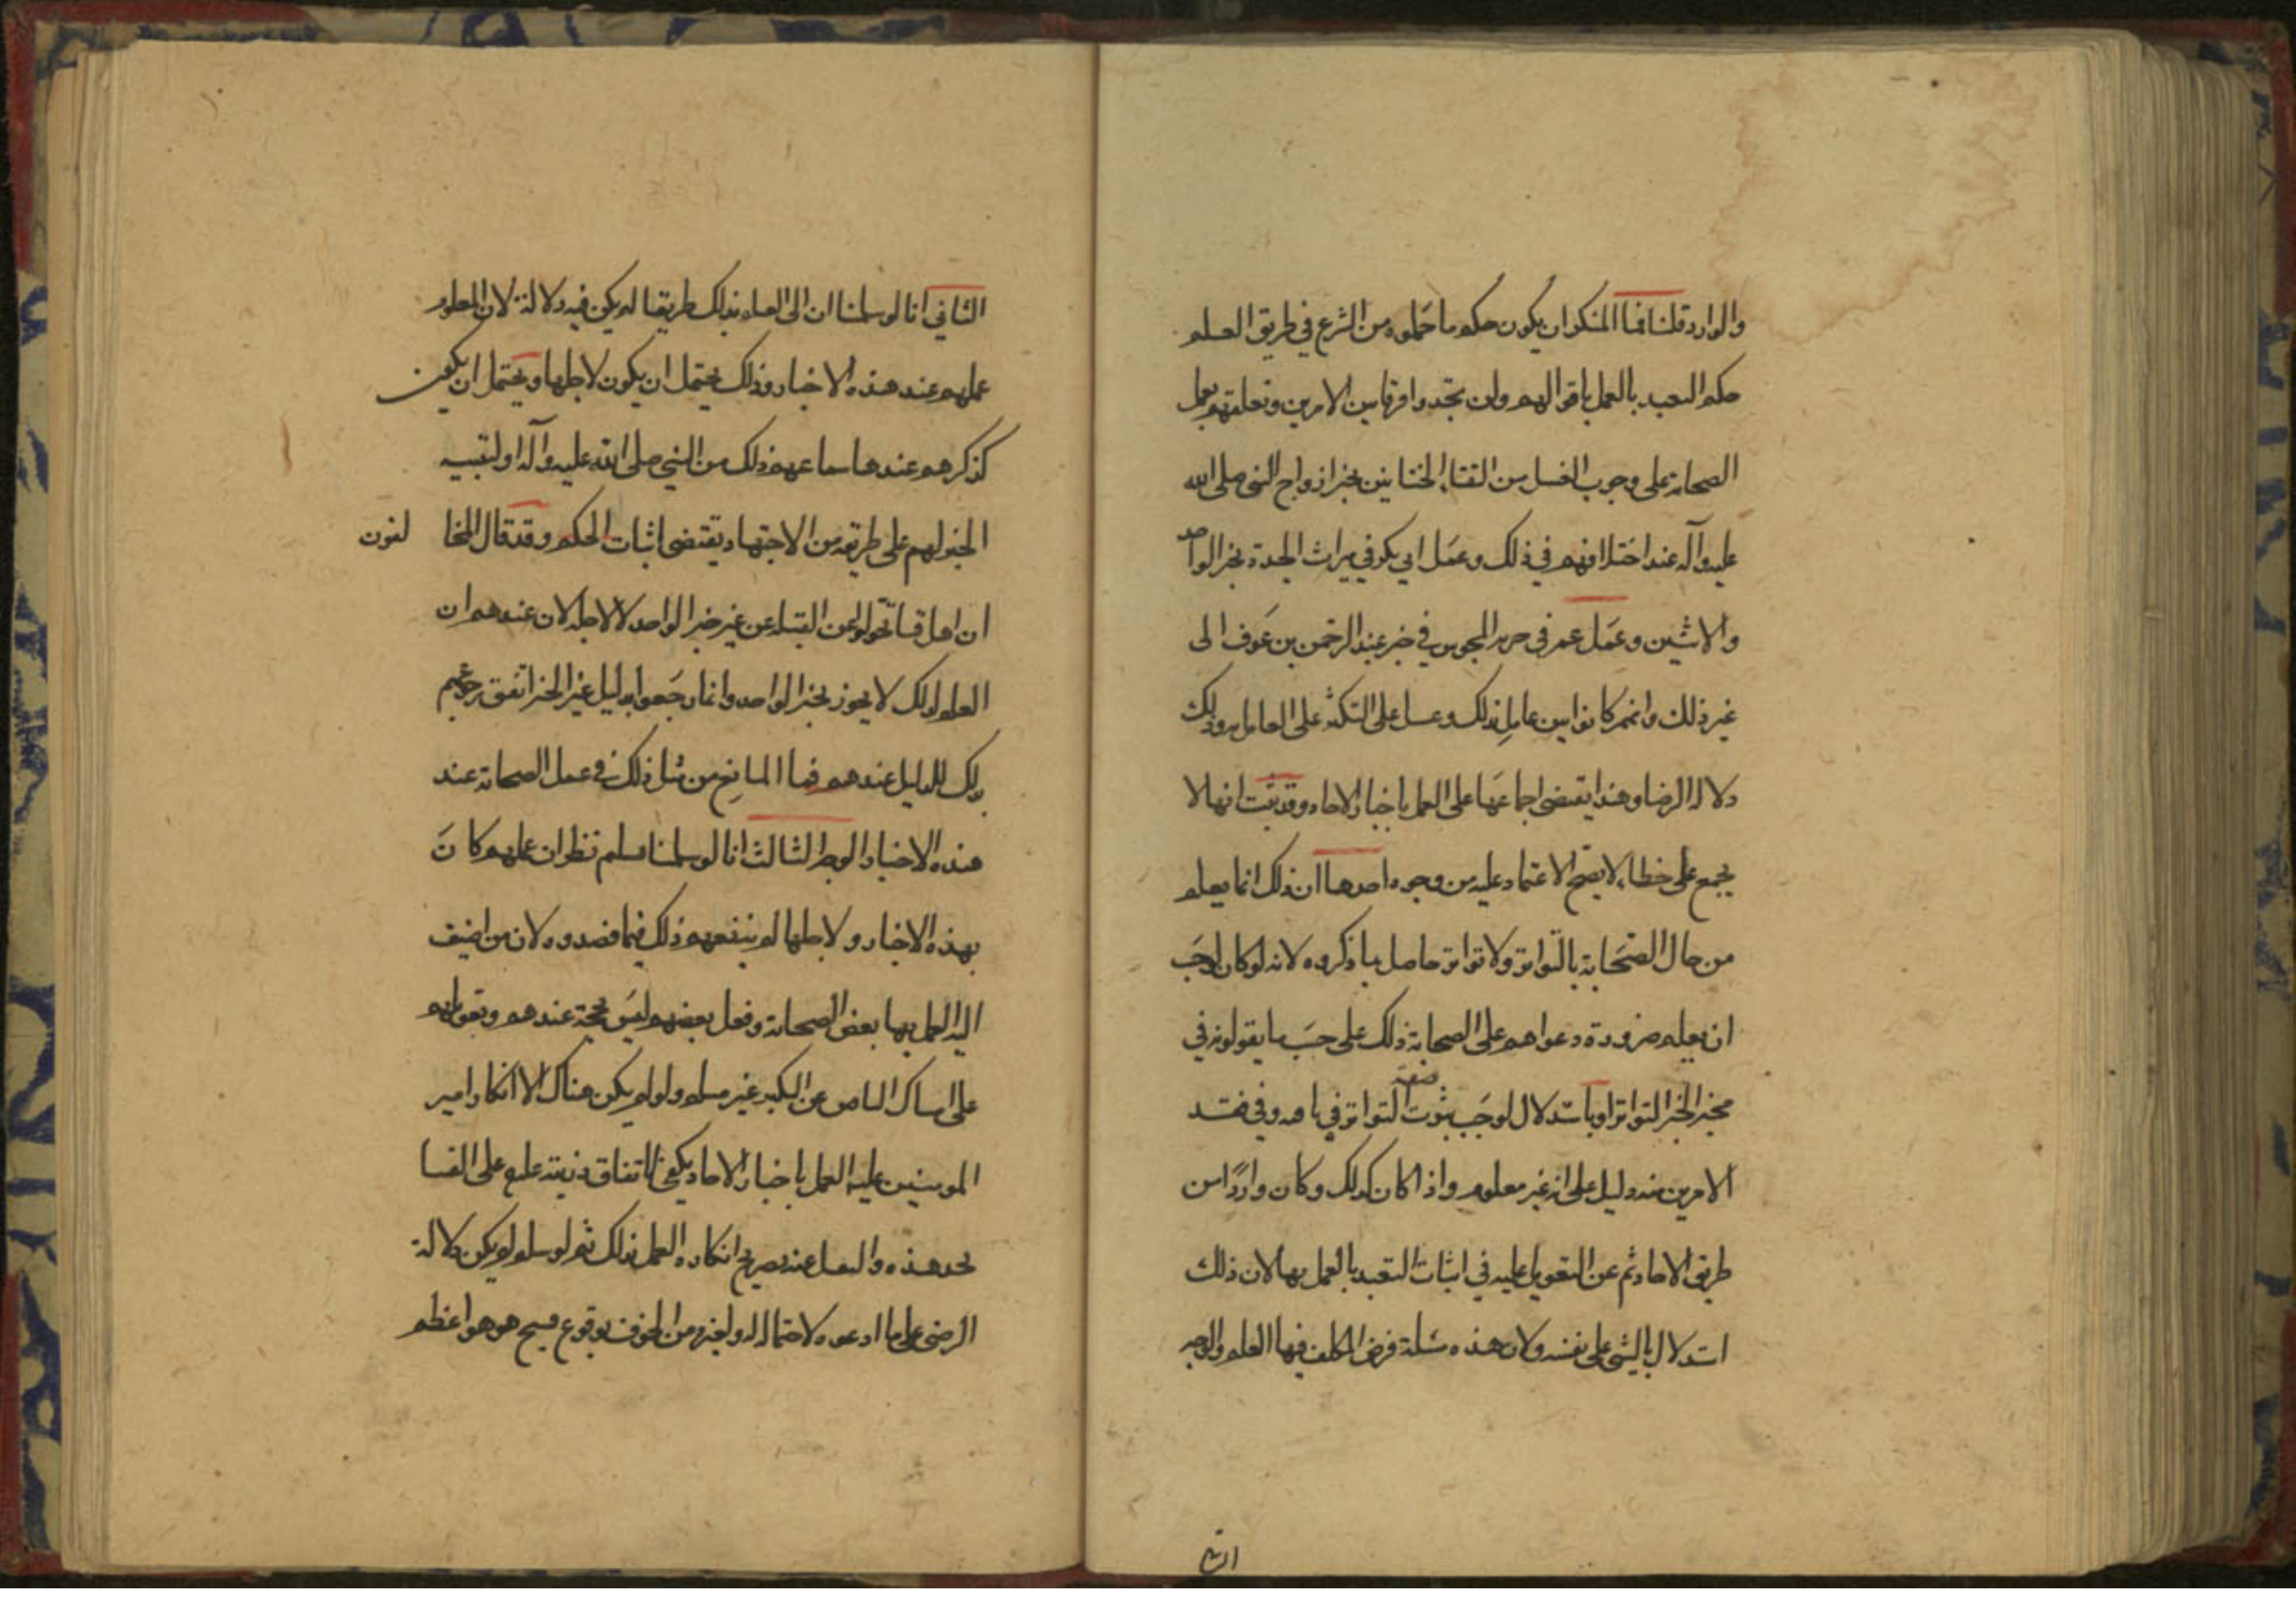 والوارد قلنا فما المنكر ان يكون حكم ما حملوه من الشرع في طريق العلم
حكم التعبد بالعمل باقوالهم ولن تجدوا فرقا بين الامرين وتعلقهم بعمل
الصحابة على وجوب الغسل من التقاء الختانين بخبر ازواج النبي صلى الله
عليه وآله عند اختلافهم في ذلك وعمل ابي بكر في ميراث الجدة بخبر الواحد
والاثنين وعمل عمر في المجوس في خبر عبد الرحمن بن عوف الى
غير ذلك وانهم كانوا بين عامل بذلك و على العامل به وذلك
دلالة الرضا وهذا يقتضي اجماعها على العمل باخبار الاحاد وقد ثبت انها لا
يجمع على خطاء لا يصح الاعتماد عليه من وجوه احدها ان ذلك انما يعلم
من حال الصحابة بالتواتر ولا تواتر حاصل بما ذكروه لانه لو كان لوجب
ان يعلم ضرورة دعواهم على الصحابة ذلك على حسب ما يقولونه في
مخبر الخبر المتواتر او باستدلال لوجب ثبوت صفة التواتر في وفي فقد
الامرين منه دليل على انه غير معلوم واذا كان كذلك وكان واردا من
طريق الاحاد عن التعويل عليه في اثبات التعبد بالعمل بها لان ذلك
استدلال بالشي على نفسه ولان هذه مسئلة فرض المكلف فيها العلم والوجه
الثاني
الثاني انا لو سلمنا ان الى العلم بذلك طريقا لم يكن فيه دلالة لان المعلوم
عملهم عند هذه الاخبار وذلك يحتمل ان يكون لاجلها ويحتمل ان يكون
لذكرهم عندها سماعهم ذلك من النبي صلى الله عليه وآله او لتنبيه
الخبر لهم على طريقه من الاجتهاد يقتضي اثبات الحكم وقد قال المخالفون
ان اهل قبا تحولوا عن القبلة عن غير خبر الواحد لا لاجله لان عندهم ان
العلم لذلك لا يجوز بخبر الواحد وانما رجعوا بدليل غير الخبر اتفق رجوعهم
لذلك الدليل عندهم فما المانع من مثل ذلك في عمل الصحابة عند
هذه الاخبار الوجه الثالث انا لو سلمنا ان عملهم كان
بهذه الاخبار ولاجلها لم ينفعهم ذلك فيما قصدوه لان من اضيف
اليه العمل بها بعض الصحابة وفعل بعضهم ليس بحجة عندهم وتعويلهم
على امساك الناس عن النكير غير مسلم ولو لم يكن هناك الا انكار امير
المومنين عليه العمل باخبار الاحاد يكفي على الفتيا
هذه عنه بصريح انكاره العمل بذلك ثم لو سلم لم يكن دلالة
الرضى على ما ادعوه لاحتماله له ولغيره من الخوف بوقوع قبيح هو اعظم